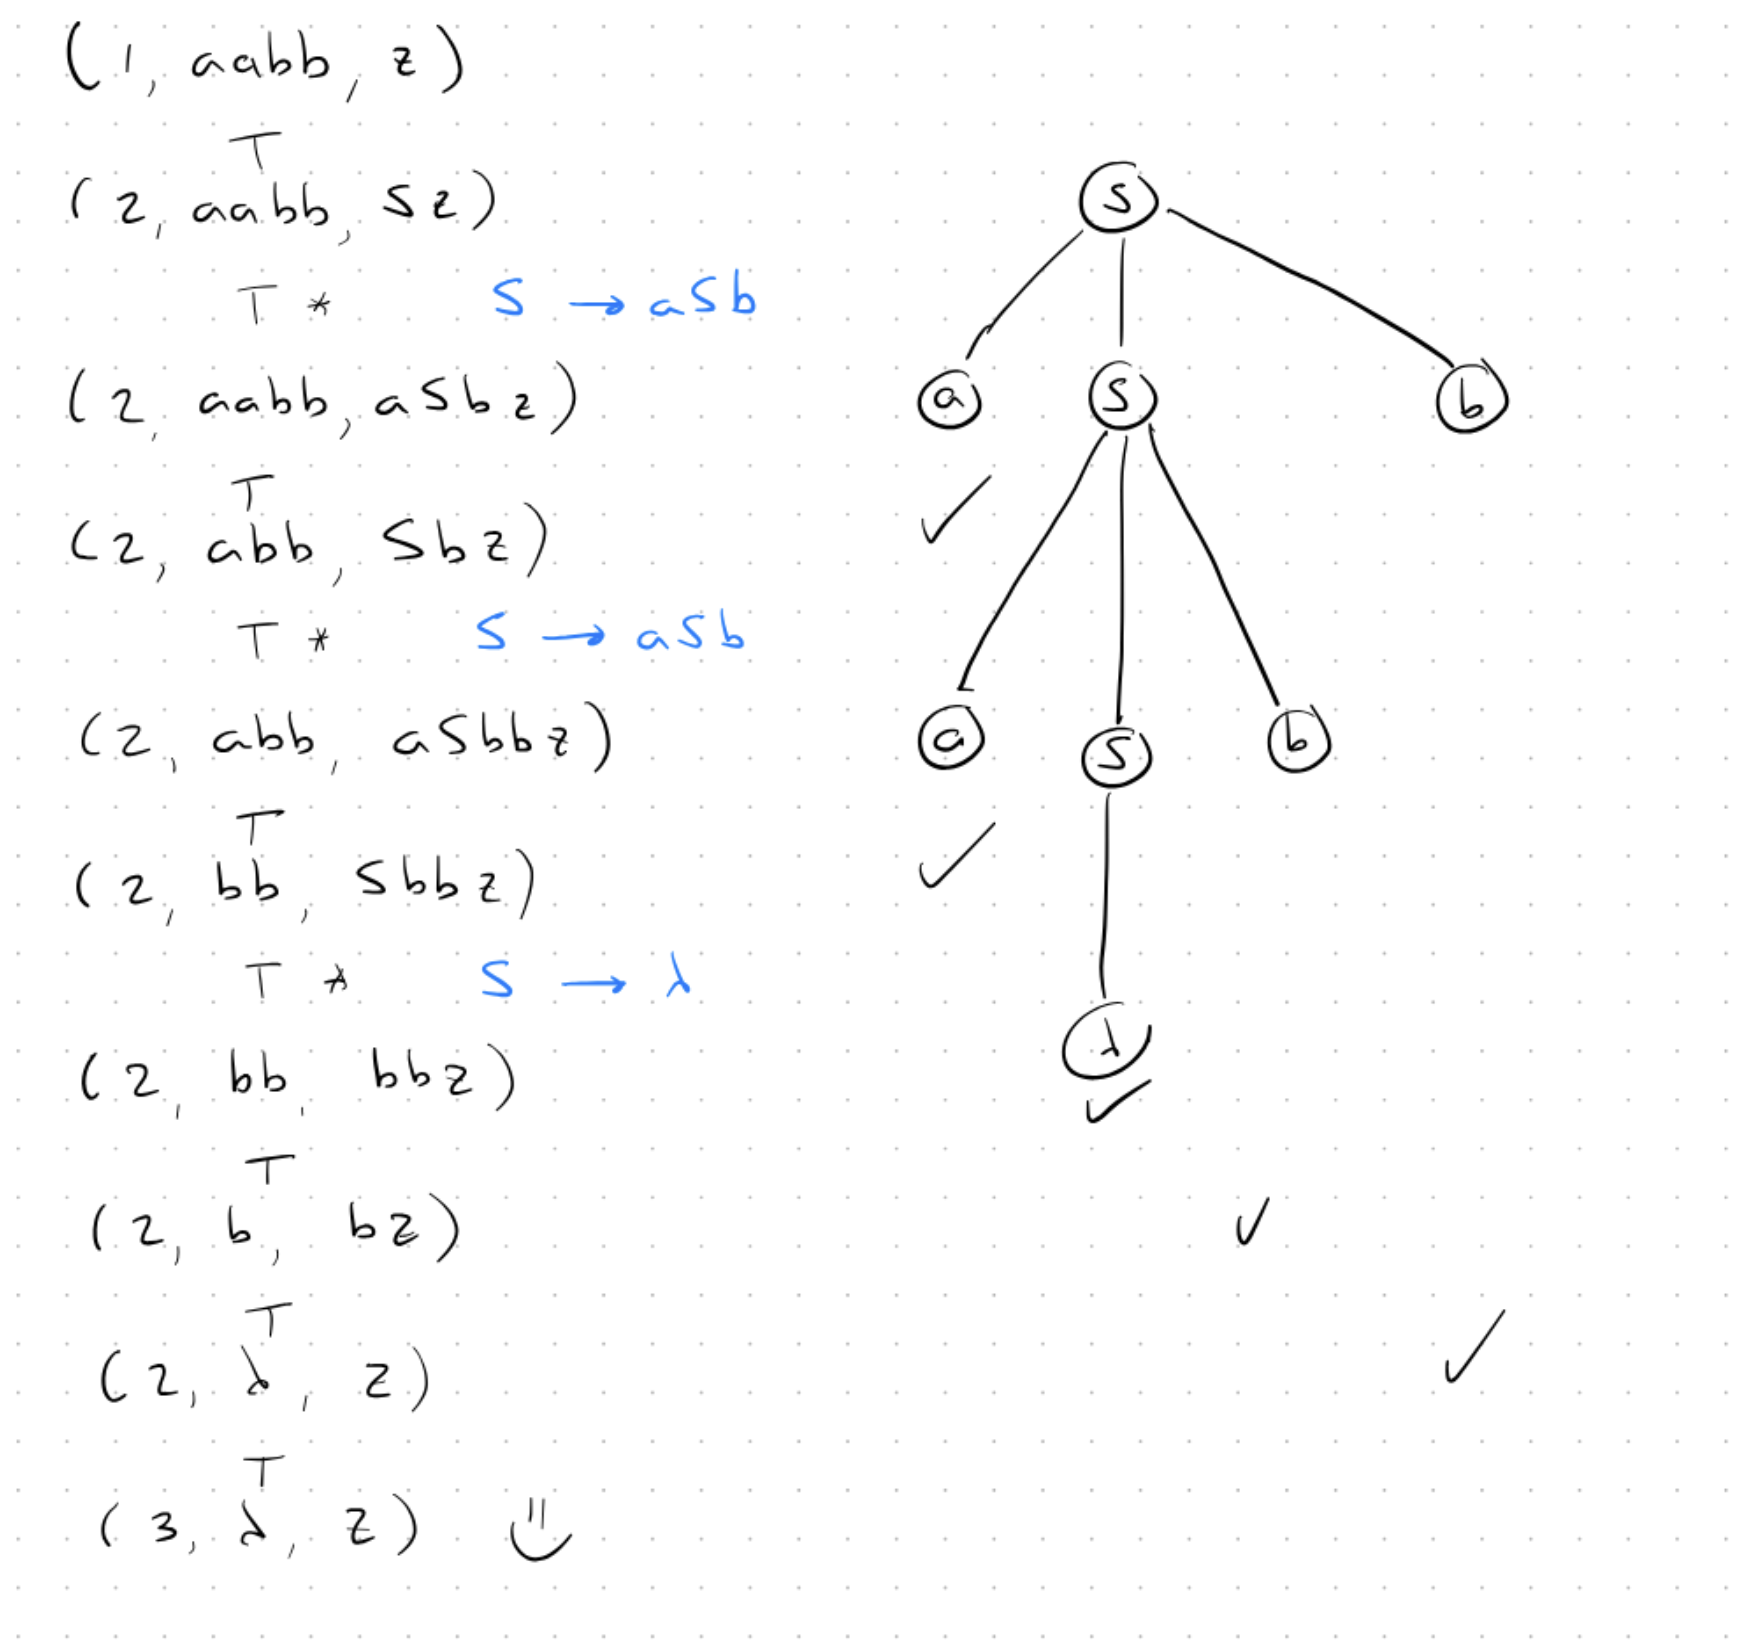 (1, aabb, z)
⊤
(2, aabb, Sz)
⊤ * S → aSb
(2, aabb, aSbz)
⊤
(2, abb, Sbz)
⊤ * S → aSb
(2, abb, aSbbz)
⊤
(2, bb, Sbbz)
⊤ * S → λ
(2, bb, bbz)
⊤
(2, b, bz)
⊤
(2, λ, z)
⊤
(3, λ, z)
S
a S b
a S b
λ